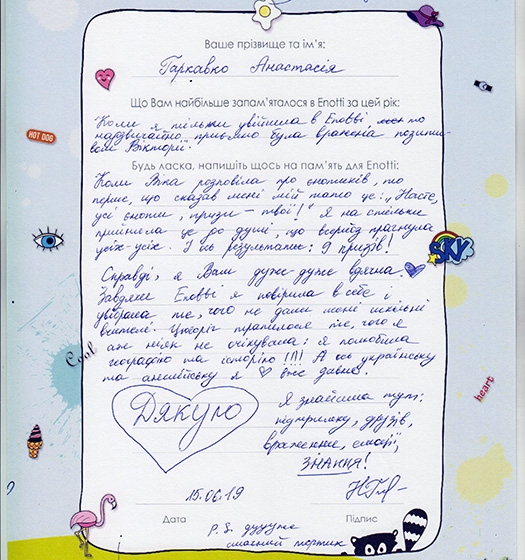 Ваше прізвище та ім'я:
Гаркавко Анастасія
Що Вам найбільше запам'яталося в Enotti за цей рік:
"Коли я тільки увійшла в Enotti
надзвичайно приємно була вражена позити-
вом Вікторії".
Будь ласка, напишіть щось на пам'ять для Enotti:
Коли Віка розповіла про єнотиків, то
перше, що сказав мені мій тато це: "Настє,
усі єноти, призи – твої!" Я на стільки
прийняла це до душі, що всеріз прагнула
усіх-усіх. І ось результат: 9 призів!
Справді, я Вам дуже-дуже вдячна.
Завдяки Enotti я повірила в себе і
увібрала те, чого не дали мені шкільні
вчителі. Цьоріч трапилося те, чого я
аж ніяк не очікувала: я полюбила
географію та історію!!!) А ось українську
та англійську я ♡ вже давно.
Дякую
Я знайшла тут:
підтримку, друзів,
враження, емоції,
ЗНАННЯ!
15.06.19
Дата
Підпис
P.S. дууууже
смачний тортик
HOT DOG
SKY
Cool
heart